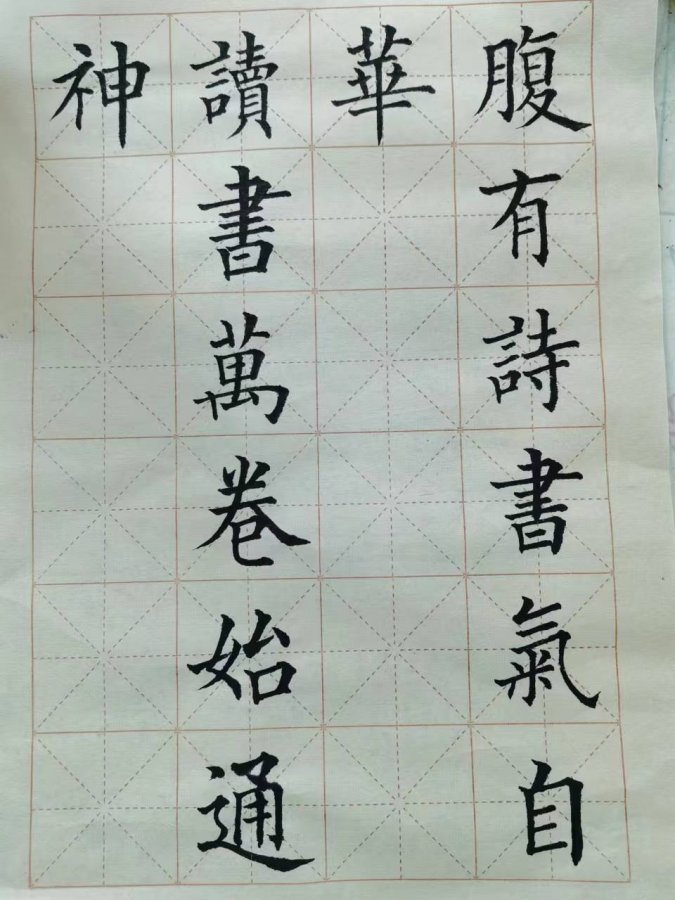 腹有詩書氣自
華
讀書萬卷始通
神